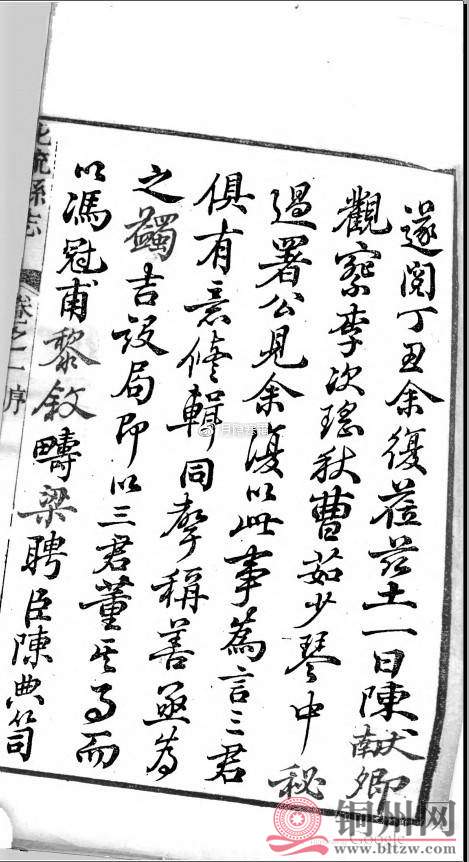 遂閣丁丑余復蒞茲土一日陳献卿
觀察李次瑤秋曹茹少琴中秘
過署公見余復以此事為言三君
俱有意修輯同聲稱善亟為
之蠲吉設局即以三君董其事而
以馮冠甫黎敘疇梁聘臣陳典笥
北流縣志 卷之一 序
铜州网
Google
www.bltzw.com